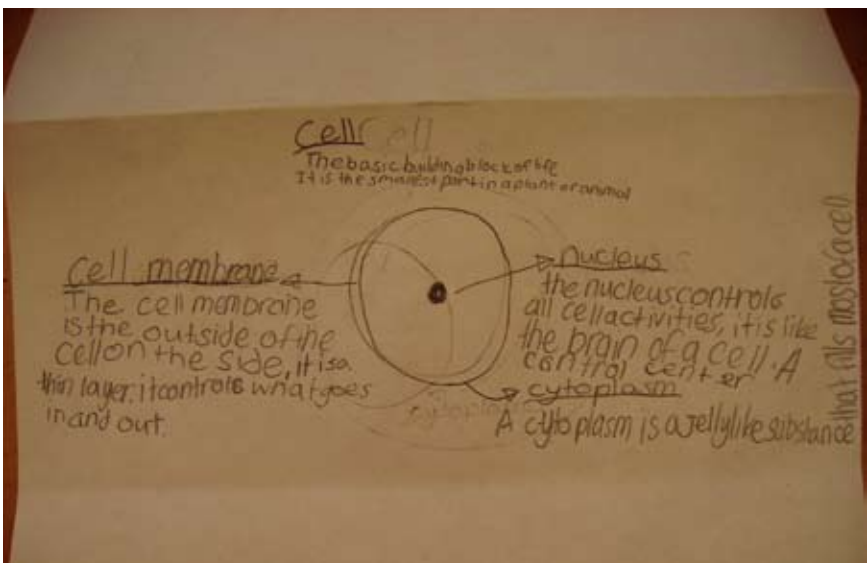 Cell Cell
The basic building block of life
It is the smallest part in a plant or animal
cell membrane
The cell membrane
is the outside of the
cell on the side, it is a
thin layer. it controls what goes
in and out.
nucleus
the nucleus controls
all cell activities, it is like
the brain of a cell. A
control center
cytoplasm
A cytoplasm is a Jelly like substance
that fills most of a cell
cytoplasm